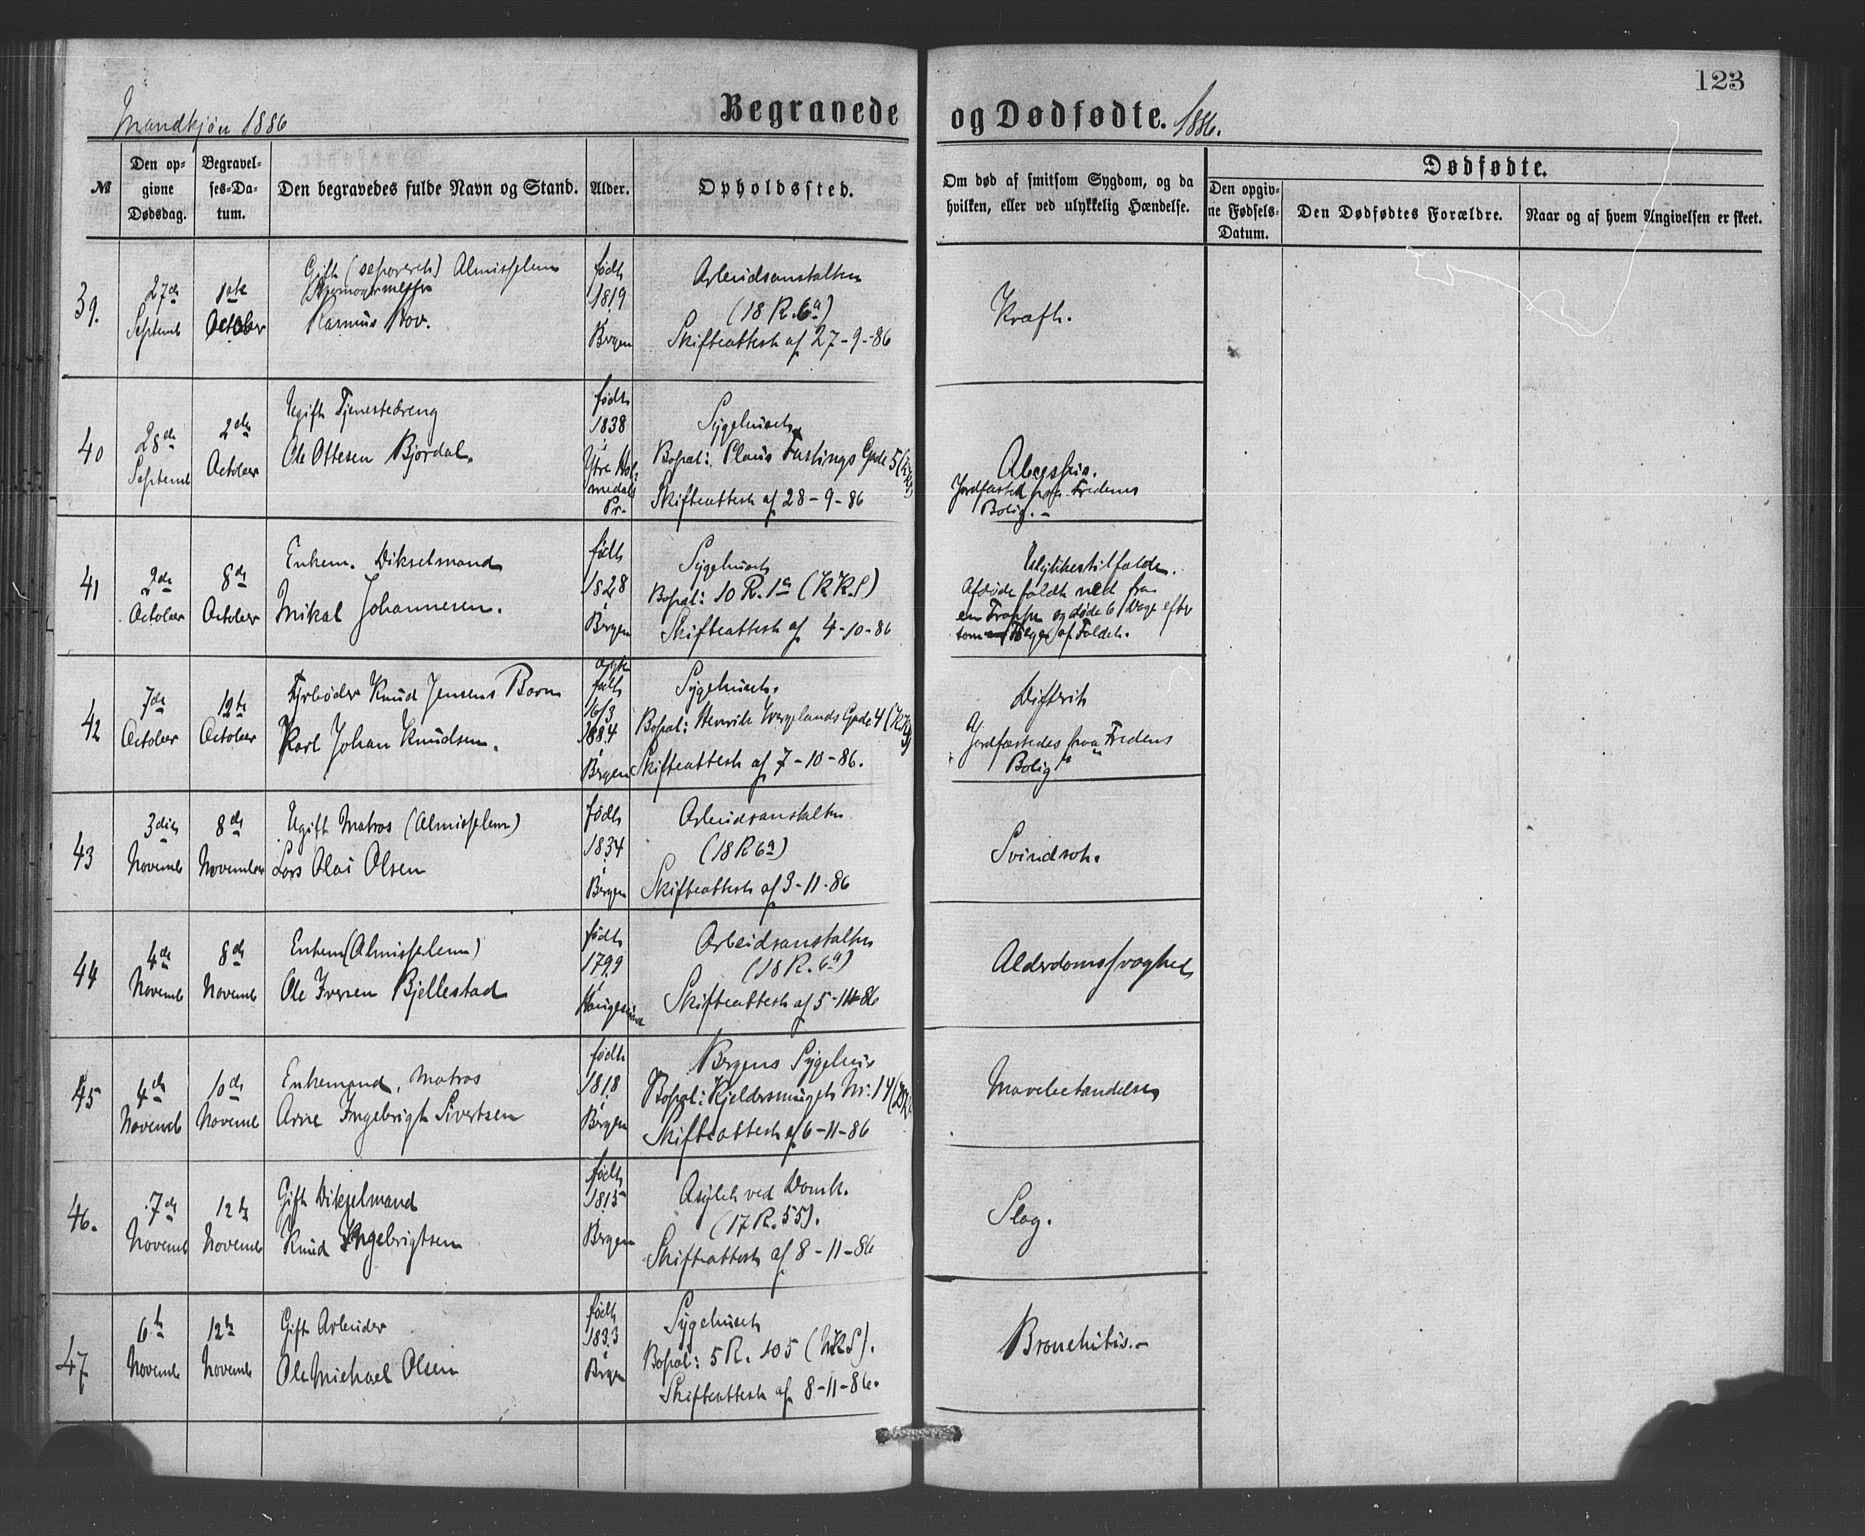 123
Mandkjøn 1886
Begravede og Dødfødte. 1886.
№
Den op-
givne
Dødsdag.
Begravel-
ses-Da-
tum.
Den begravedes fulde Navn og Stand.
Alder.
Opholdssted.
Om død af smitsom Sygdom, og da
hvilken, eller ved ulykkelig Hændelse.
Dødfødte.
Den opgiv-
ne Fødsels-
Datum.
Den Dødfødtes Forældre.
Naar og af hvem Angivelsen er skeet.
39.
27de
Septemb
1ste
October
Gift (separeret) Almisselem
Rasmus Hov.
født
1819
i
Bergen
Arbeidsanstalten
(18 R. 6a)
Skifteattest af 27-9-86
Kræft.
40
28de
Septemb
2den
October
Ugift Tjenestedreng
Ole Ottesen Bjørdal.
født
1838
i
Ytre Hol-
medals
Pr.
Sygehuset
Bopæl: Claus Fastings Gade 5 (KKS)
Skifteattest af 28-9-86
Jordfæstet fra Fredens
Bolig.-
41
2den
October
8de
October
Enkem. Dikselmand
Mikal Johannesen.
født
1828
i
Bergen
Sygehuset
Bopæl: 10 R. 1a (KKS)
Skifteattest af 4-10-86
Ulykkestilfælde.
Afdøde faldt ned fra
en Trappe og døde 6 Dage efter
som Følge af Faldet.
42
7de
October
12te
October
Fyrbøder Knud Jensens Barn
Karl Johan Knudsen.
født
16/3
1884
i
Bergen
Sygehuset.
Bopæl: Henrik Wergelands Gade 4 (KKS)
Skifteattest af 7-10-86.
Difterit
Jordfæstedes fraa Fredens
Bolig
43
3die
Novemb
8de
November
Ugift Matros (Almisselem)
Lars Olai Olsen
født
1834
i
Bergen
Arbeidsanstalten
(18 R 6a)
Skifteattest af 3-11-86
Svindsot.
44
4de
Novemb
8de
Novemb
Enkem (Almisselem)
Ole Iversen Bjellestad
født
1799
i
Haugesund
Arbeidsanstalten
(18 R. 6a)
Skifteattest af 5-11-86
Alderdomssvaghed
45
4de
Novemb
10de
Novemb
Enkemand, Matros
Arne Ingebrigt Sivertsen
født
1818
i
Bergen
Bergens Sygehus
Bopæl: Kjeldersmuget Nr. 14 (DKS)
Skifteattest af 6-11-86
Mavebetændelse
46.
7de
Novemb
12te
Novemb
Gift Dikselmand
Knud Ingebrigtsen
født
1815
i
Bergen
Asylet ved Domk.
(17 R. 55).
Skifteattest af 8-11-86
Slag.
47
6te
Novemb
12te
Novemb
Gift Arbeider
Ole Michael Olsen
født
1833
i
Bergen
Sygehuset
Bopæl: 5 R. 105 (NKS).
Skifteattest af 8-11-86.
Bronchitis.-